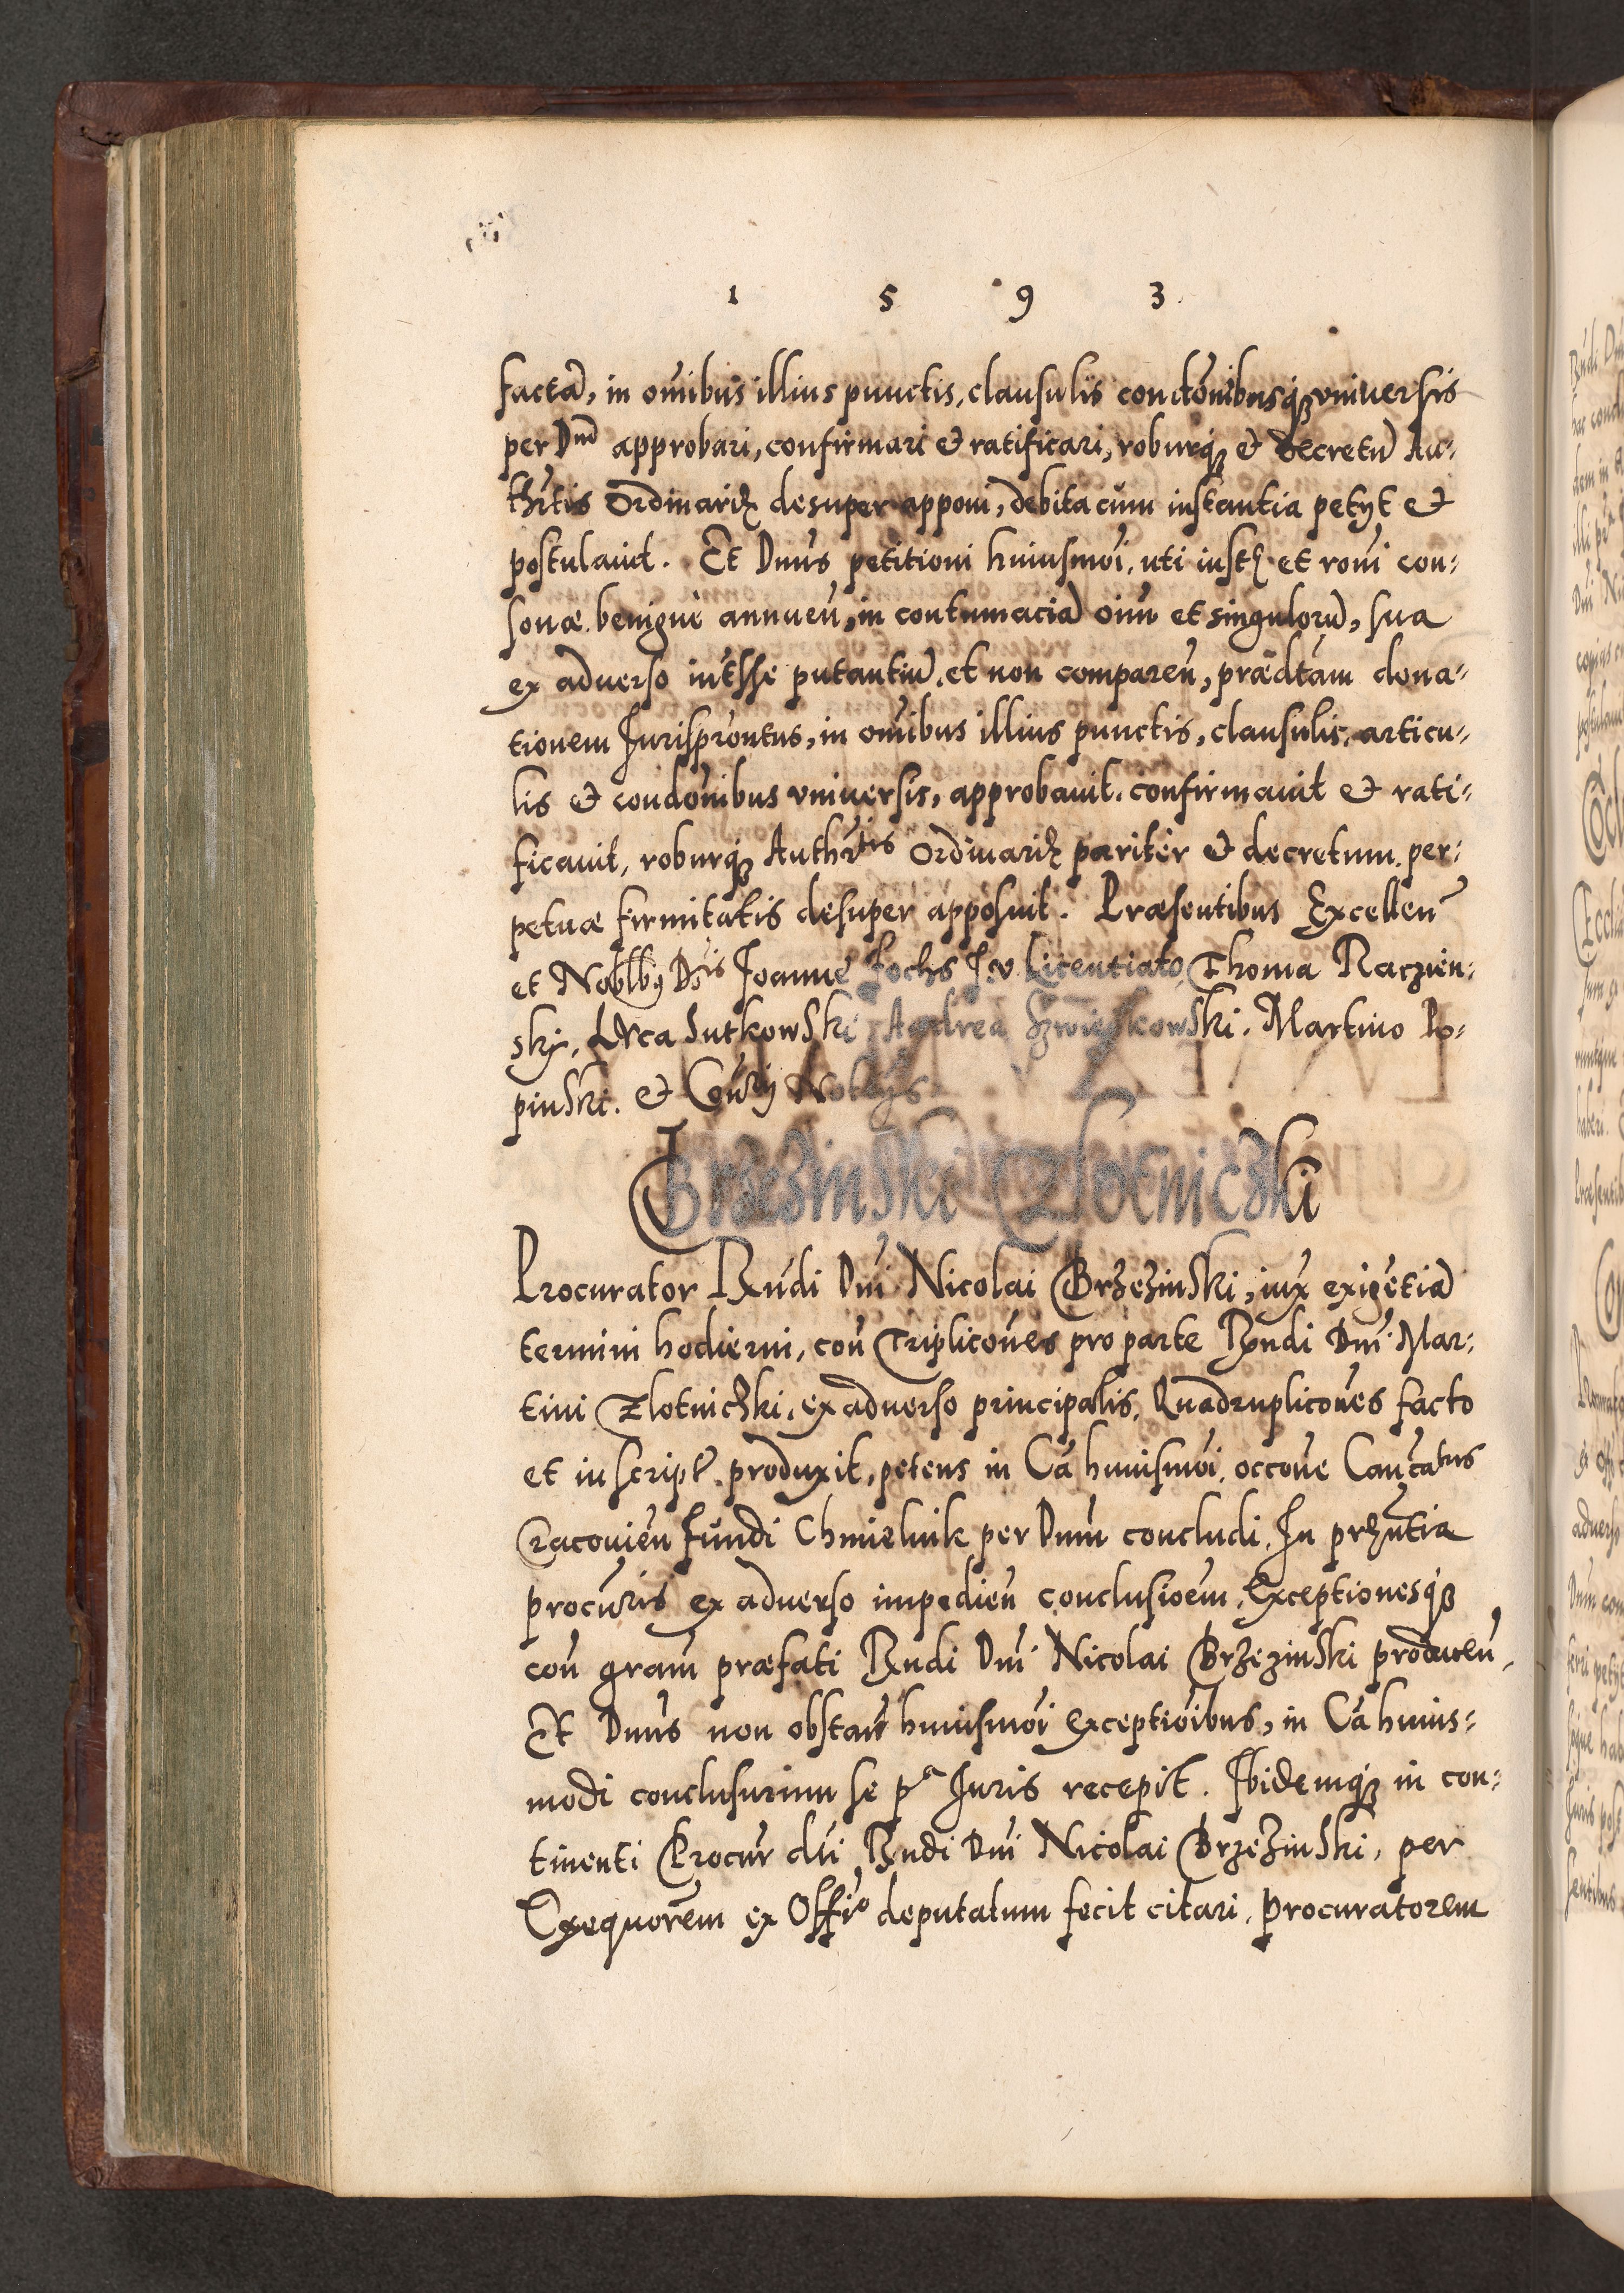 1 5 9 3
factā, in oībus illius punctis, clausulis condōnibusq₃ vniuersis
per Dnū approbari, confirmari et ratificari, roburq₃ et decretū Au-
thrtis Ordinariæ desuper apponi, debita cum instantia petyt et
postulauit. Et Dnus petitioni huiusmōi, uti iustæ et rōni con-
sonæ benigne annuen, in contumaciā oīum et singulorū, sua
ex aduerso intēsse putantiū, et non comparen, prædtam dona-
tionem Jurisprontus, in omībus illius punctis, clausulis, articu-
lis et condōnibus vniuersis, approbauit, confirmauit et rati-
ficauit, roburq₃ Authrtis Ordinariæ pariter et decretum per-
petuæ firmitatis desuper apposuit. Præsentibus Excellen
et Noblbus Dnis Joanne Fochs J.v. Licentiato, Thoma Raczien-
skj, Luca Sutkowski, Andrea Szwieykowski, Martino Po-
pinski. et Coūrij Notrijs
Brzezinski Zlotniczki
Procurator Rndi Dni Nicolai Brzezinski, iux exigētiā
termini hodierni, con Triplicōnes pro parte Rndi Dni Mar-
tini Zlotniczki, ex aduerso principalis, Quadruplicōnes facto
et in script. produxit, petens in Cā huiusmōi, occōne Cančatus
Cracouien fundi Chmielnik per Dnum concludi, In prntia
procūris ex aduerso impedien conclusioēm, Exceptionesq₃
con gram præfati Rndi Dni Nicolai Brzezinski producen,
Et Dnus non obstan huiusmōi exceptiōibus, in Cā huius-
modi conclusurum se pa Juris recepit. Ibidemq₃ in con-
tinenti Procur dti Rndi Dni Nicolai Brzezinski, per
Exequorēm ex Offio deputatum fecit citari, Procuratorem